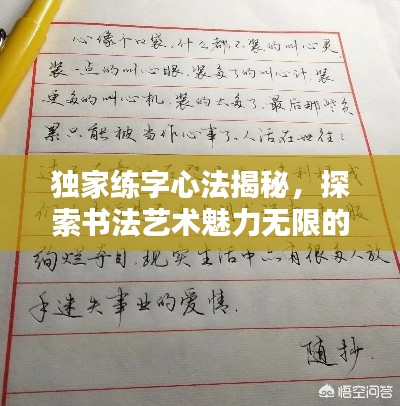 心像个口袋,什么都不装的叫心灵,
装一点的叫心眼,装多了的叫心计,装
更多的叫心机,装的太多了,最后那些负
累只能被当作心事了,人活在世往:
独家练字心法揭秘，探
索书法艺术魅力无限的
绚烂夺目,现实生活中有很多人放
手迷失事业的爱情.
随抄.
悟空问答